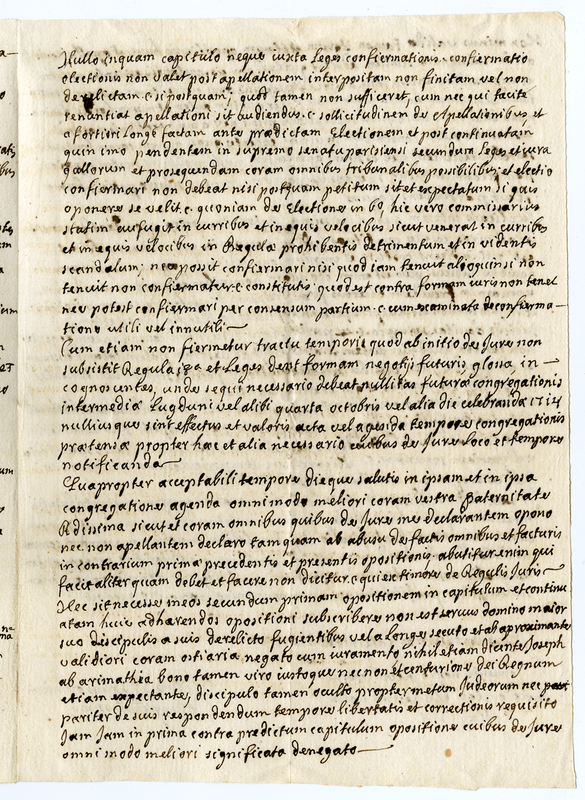 Nullo inquam capitulo neque iuxta Leges confiermationis. confiermatio
electionis non valet post apellationem interpositam non finitam vel non
derelictam. c. si postquam; quod tamen non sufficeret, cum nec qui tacite
renuntiat apellationi sit audiendus. c sollicitudinem de Apellationibus et
a fortiori Longe factam ante prædictam Electionem et post continuatam
quin imo pendentem in supremo senatu parisiensi secundum Leges et iura
gallorum et prosequendam coram omnibus tribunalibus possibilibus, et electio
confiermari non debeat nisi postquam petitum sit et expectatum si quis
oponere se velit. c. quoniam de Electione in 6º, hic vero commissarius
statim aufugit in curribus et in equis velocibus sicut venerat in curribus
et in equis velocibus in Regulæ prohibentis detrimentum et in videntis
scandalum; nec possit confiermari nisi quod iam tenuit alioquin si non
tenuit non confiermatur. c constitutis; quod est contra formam iuris non tenet
nec potest confiermari per consensum partium. c. cum examinata de confierma-
tione utili vel innutili
Cum etiam non fiermetur tractu temporis quod ab initio de Jure non
subsistit Regula et Leges dent formam negotijs futuris glossa, in
cognoscentes, unde sequi necessario debeat nullitas futuræ congregationis
intermediæ Lugduni vel alibi quarta octobris vel alia die celebranda 1714
nulliusque sint effectus et valoris acta vel agenda tempore congregationis
prætensæ propter hæc et alia necessario quibus de Jure Loco et tempore
notificanda
Quapropter acceptabili tempore dieque salutis in ipsam et in ipsa
congregatione agenda omnimodo meliori coram vestra Paternitate
Rdissima sicut et coram omnibus quibus de Jure me declarantem opono
nec non apellantem declaro tamquam ab abusu de factis omnibus et facturis
in contrarium primæ precedentis et presentis opositionis. abutitur enim qui
facit aliter quam debet et facere non dicitur. c qui ex timore de Regulis Juris
Nec sit necesse meos secundum primam opositionem in capitulum et continu
atam huic adhærendos opositioni subscribere non est servus domino maior
suo discipulis a suis derelicto fugientibus vel a Longe secuto et ab aproximante
validiori coram ostiaria negato cum iuramento nihil etiam dicente Joseph
ab arimathea bono tamen viro iustoque nec non et centurione dei Regnum
etiam expectante, discipulo tamen oculto propter metum Judeorum nec
pariter de suis respondendum tempore libertatis et correctionis requisito
Jam Jam in prima contra predictum capitulum opositione quibus de Jure
omnimodo meliori significata denegato